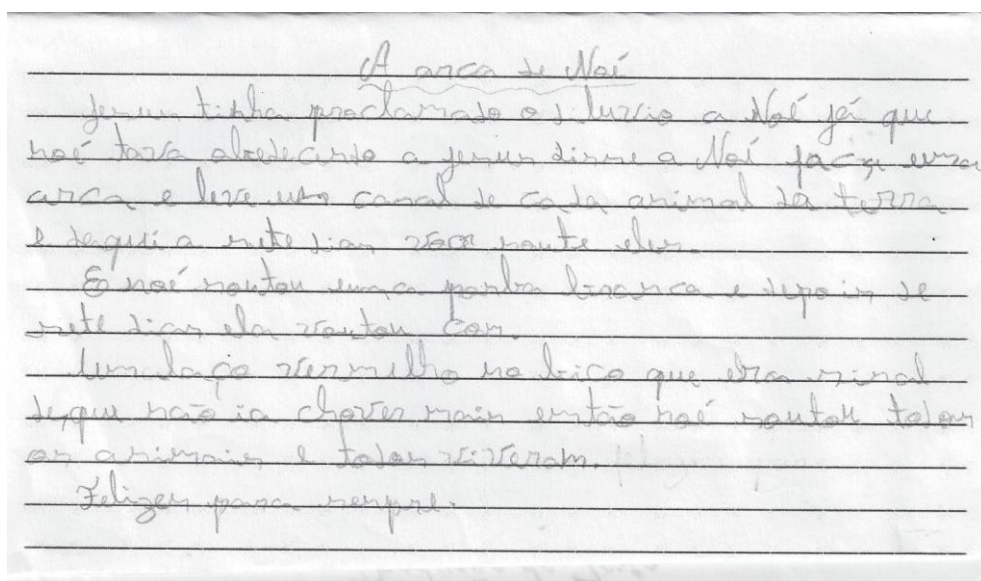 A arca de Noé
Jesus tinha proclamado o diluvio a Noé já que
noé tava obedecendo a jesus disse a Noé faça uma
arca e leve um casal de cada animal da terra
e daqui a sete dias voce soute eles.
E noé soutou uma ponba branca e depois de
sete dias ela voutou com.
Um laço vermilho no bico que era sinal
de,que não ia chover mais então noé soutou todos
os animais e todos viveram.
Felizes para senpre.